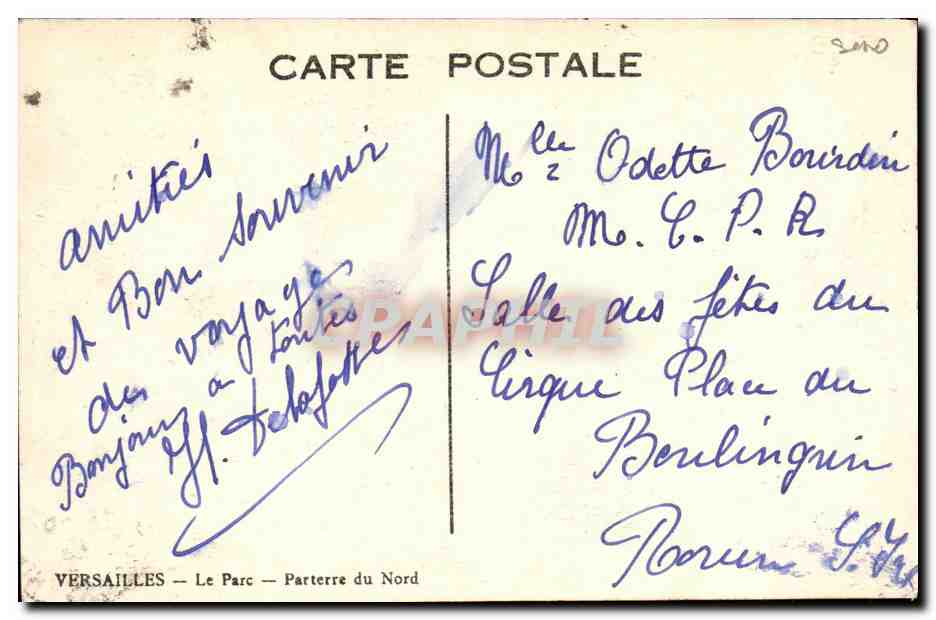 CARTE POSTALE
amitiés
et Bon Souvenir
des voyage
Bonjour a toutes
H. Delafosse
Mlle Odette Bourdin
M. C. P. R
Salle des fêtes du
Cirque Place du
Boulingrin
Rouen S. Inf
VERSAILLES — Le Parc — Parterre du Nord
CPAPHIL